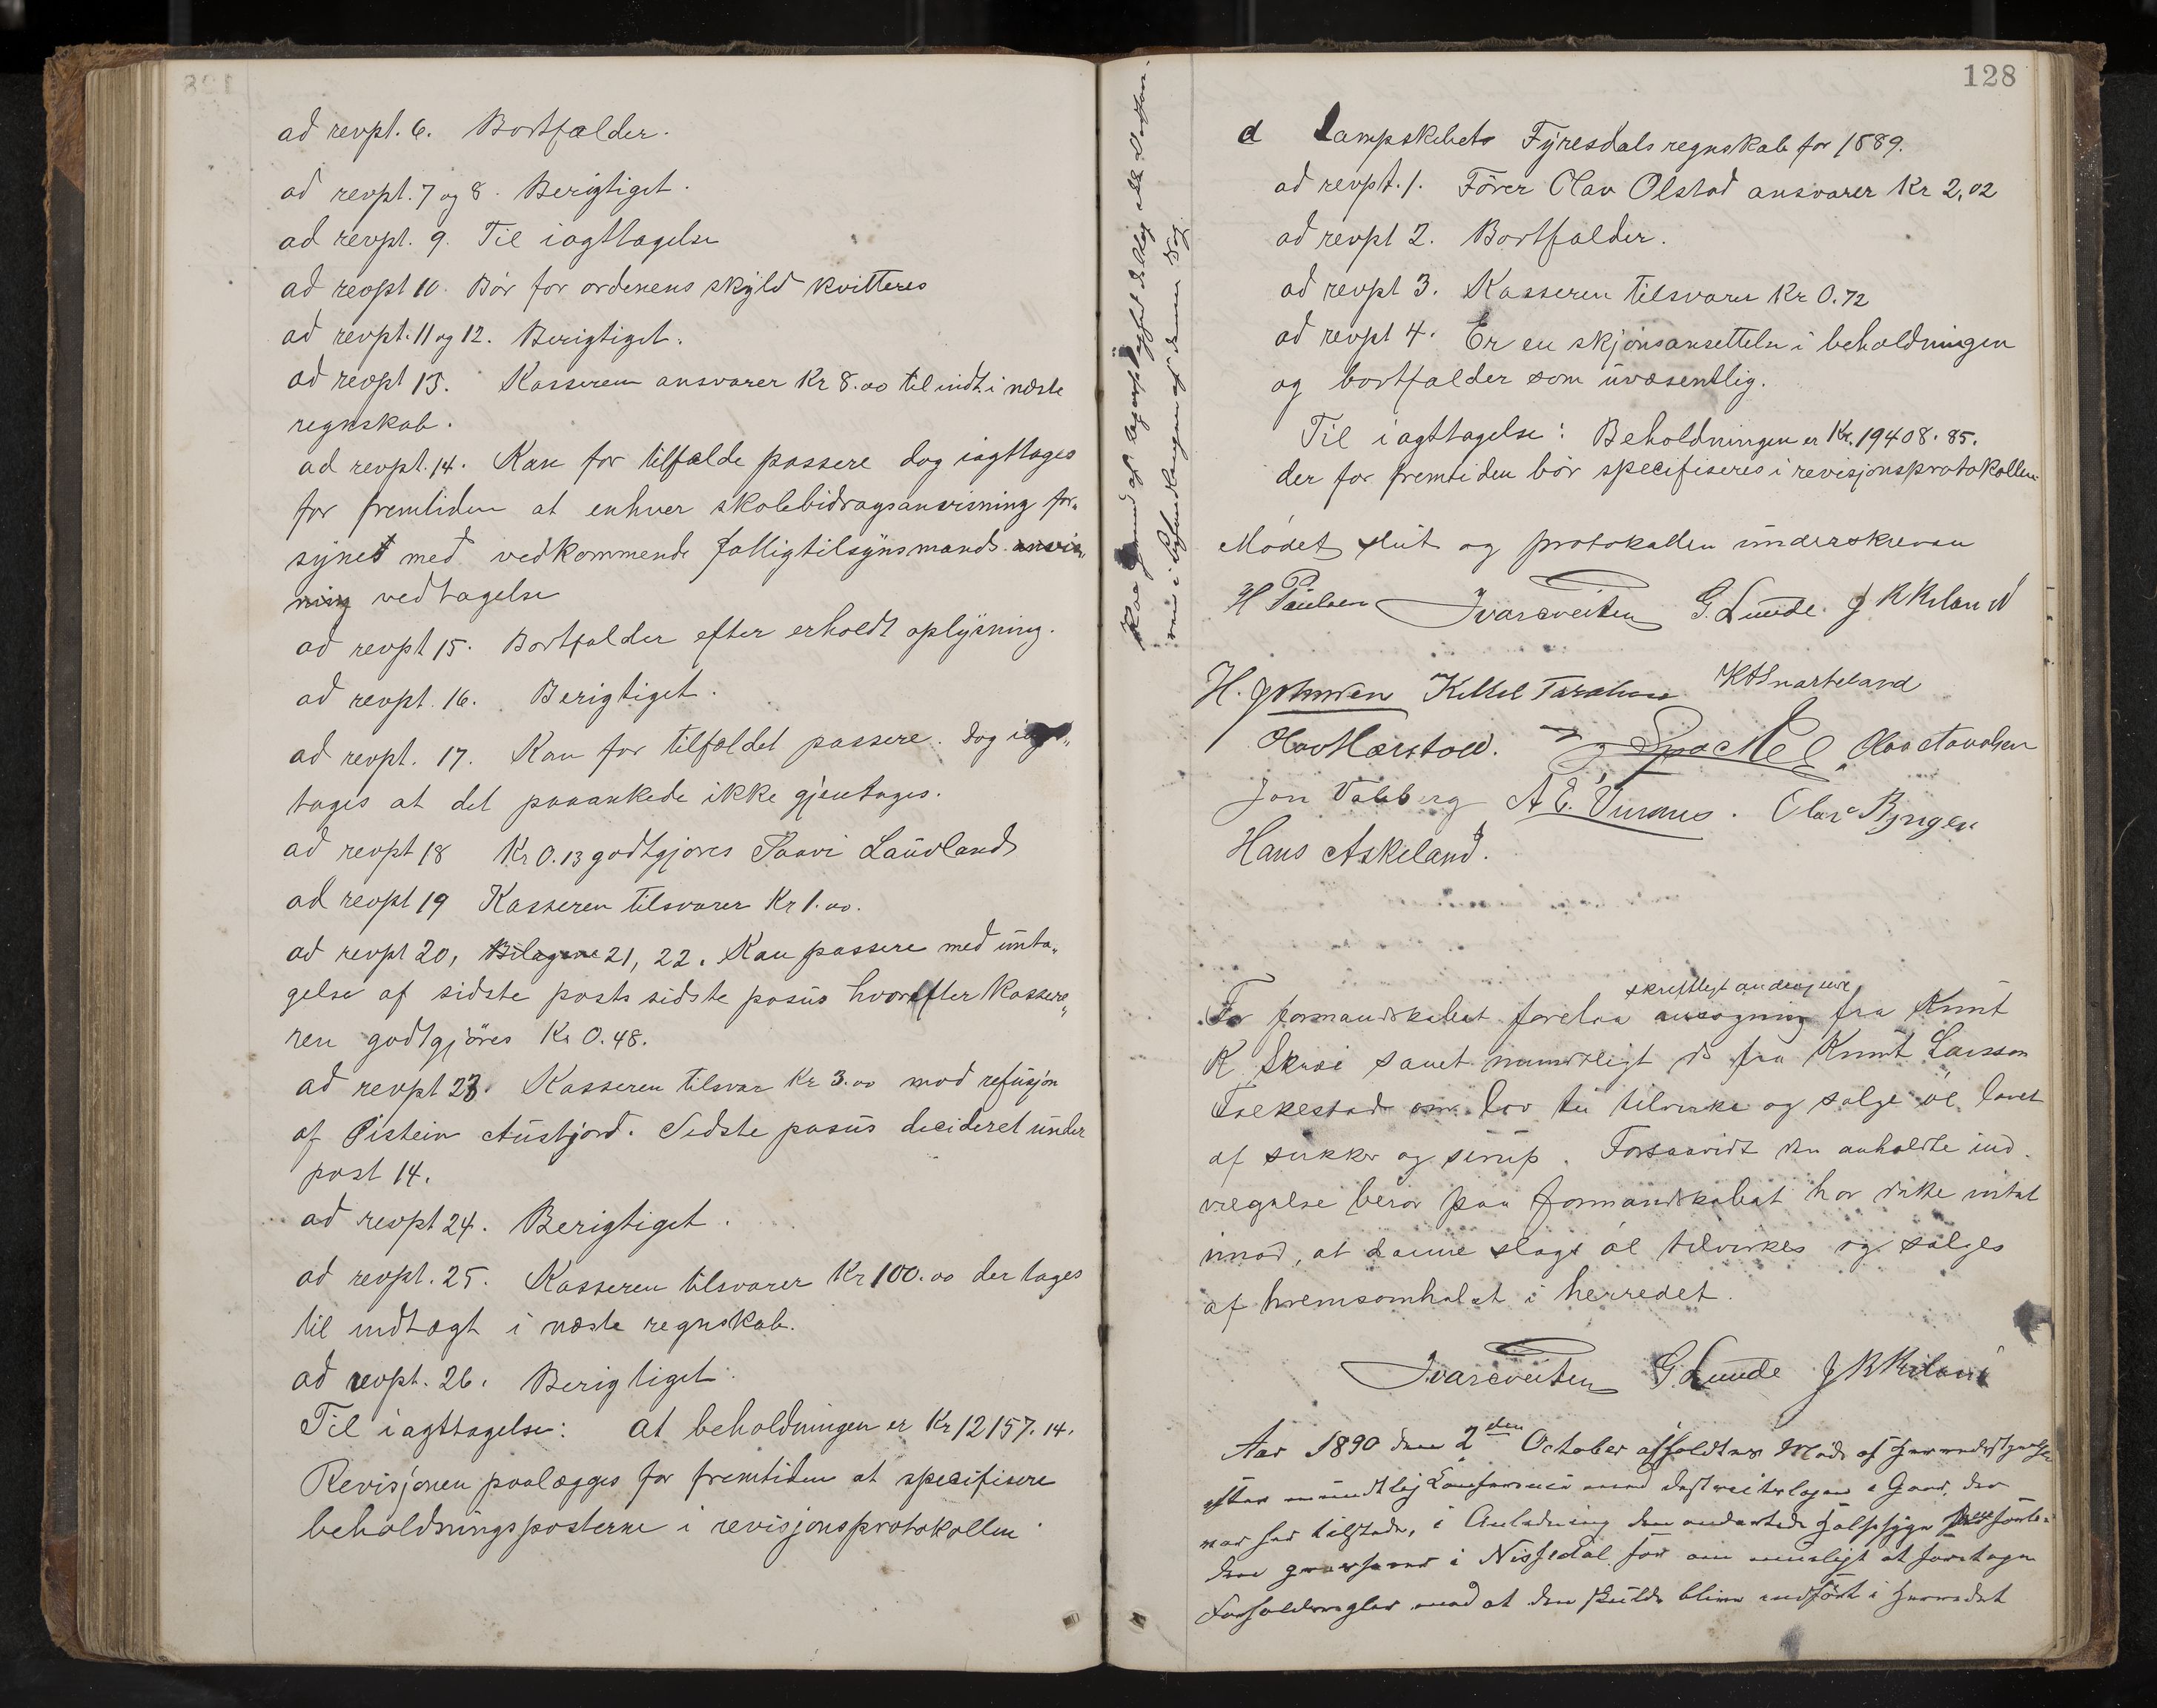 ad revpt. 6. Bortfalder.
ad revpt. 7 og 8. Berigtiget.
ad revpt. 9. Til iagttagelse
ad revpt 10. Bör for ordenens skyld kvitteres
ad revpt. 11 og 12. Berigtiget.
ad revpt 13. Kasseren ansvarer Kr 8.00 til indt. i næste
regnskab.
ad revpt. 14. Kan for tilfælde passere dog iagttages
for fremtiden at enhver skolebidragsanvisning for„
synet med vedkommende fattigtilsynsmands anvis„
ning vedtagelse
ad revpt 15. Bortfalder efter erholdt oplysning.
ad revpt. 16. Berigtiget.
ad revpt. 17. Kan for tilfældet passere. dog iagt„
tages at det paaankede ikke gjentages.
ad revpt 18 Kr 0.13 godtgjøres Taavi Lauvland
ad revpt 19 Kasseren tilsvarer Kr 1.00.
ad revpt 20, Bilagene 21, 22. Kan passere med unta„
gelse af sidste posts sidste pasus hvorefter Kassere„
ren godtgjöres Kr 0.48.
ad revpt 23. Kasseren tilsvar Kr 3.00 mod refusjon
af Øistein Austjord. Sidste pasus decideret under
post 14.
ad revpt 24. Berigtiget.
ad revpt. 25. Kasseren tilsvarer Kr 100.00 der tages
til indtægt i næste regnskab.
ad revpt. 26. Berigtiget.
Til iagttagelse: at beholdningen er Kr 12157.14.
Revisjonen paalægges for fremtiden at specifisere
beholdningsposterne i revisjonsprotokollen
128
d Dampskibets Fyresdals regnskab for 1889.
ad revpt. 1. Förer Olav Olstad ansvarer Kr 2,02
ad revpt 2. Bortfalder.
ad revpt 3. Kasseren tilsvarer Kr 0.72
ad revpt 4. Er en skjönsansettelse i beholdningen
og bortfalder som uvæsentlig.
Til iagttagelse: Beholdningen er Kr. 19408.85.
der for fremtiden bör specifiseres i revisjonsprotokollen
Mödet slut og protokollen underskreven
H Paulsen Ivarsveiten G. Lunde. J K Kiland
H. Johnsen Kittel
Olav Hærstad. Olav
Jon Valeberg Olav
Hans Askeland.
skriftligt andragende
For formandskabet forelaa ansøgning fra Knut
K. samt mundtligt do fra Knut Larsson
Folkestad om lov til tilvirke og sælge öl lavet
af sukker og sirup. Forsaavidt den anholdte ind
vægelse beror paa formandskabet har dette intet
imod, at denne slags öl tilvirkes og sælges
af hvemsomhelst i herredet.
Ivarsveiten G. Lunde J K Kiland
Aar 1890 den 2den October afholdtes Möde af Herredstyrelsen
efter mundtlig Conference med Distriktslægen Gaar, der
var her tilstede, i Anledning den ondartede Halssyge
den grasserer i Nissedal for om muligt at foretage
Forholdsregler mod at den skulde blive indfört i Herredet